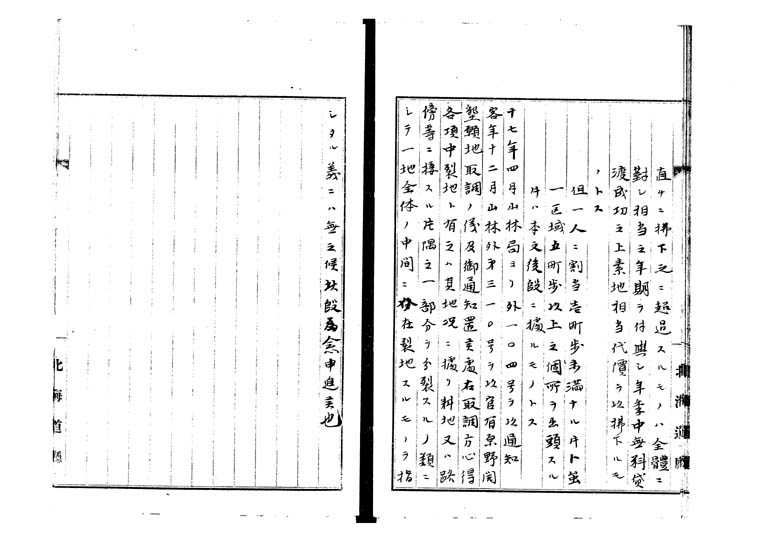 直チニ拂下之ニ超過スルモノハ全體ニ
對シ相当之年期ヲ付與シ年季中無料貸
渡成功之上素地相当代價ヲ以拂下ルモ
ノトス
但一人ニ割当壱町歩未満ナルトキト虽
一区域五町歩以上之個所ヲ出願スル
片ハ本文後段ニ據ルモノトス
十七年四月山林局ヨリ外一〇四号ヲ以通知
客年十二月山林外第三一〇号ヲ以官有原野開
墾願地取調ノ儀及御通知置候處右取調方心得
各項中裂地ト有之ハ其地况ニ據リ耕地又ハ路
傍等ニ接スル片隅之一部分ヲ分裂スルノ類ニ
シテ一地全体ノ中間ニ存在裂地スルモノヲ指
シタル義ニハ無之候此段為念申進候也
北海道廳
北海道廳